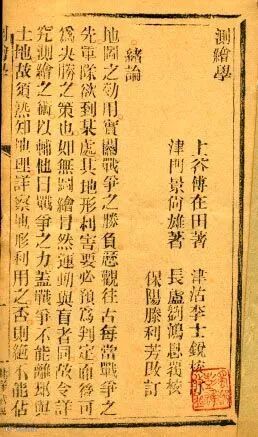 測繪學
上谷傅在田著　津沽李士銳校
津門景尚雄著　長盧劉鴻恩復核
保陽勝利芳改訂
緒論
地圖之効用實關戰爭之勝負歷觀往古每當戰爭之
先軍隊欲到某處其地形利害要必預為判定庶後可
為決勝之策也如無圖繪冒然運動與盲者同故今詳
究測繪之術以輔他日戰爭之力蓋戰爭不能離
土地故須熟知地理詳察地形利用之否則絕不能佔